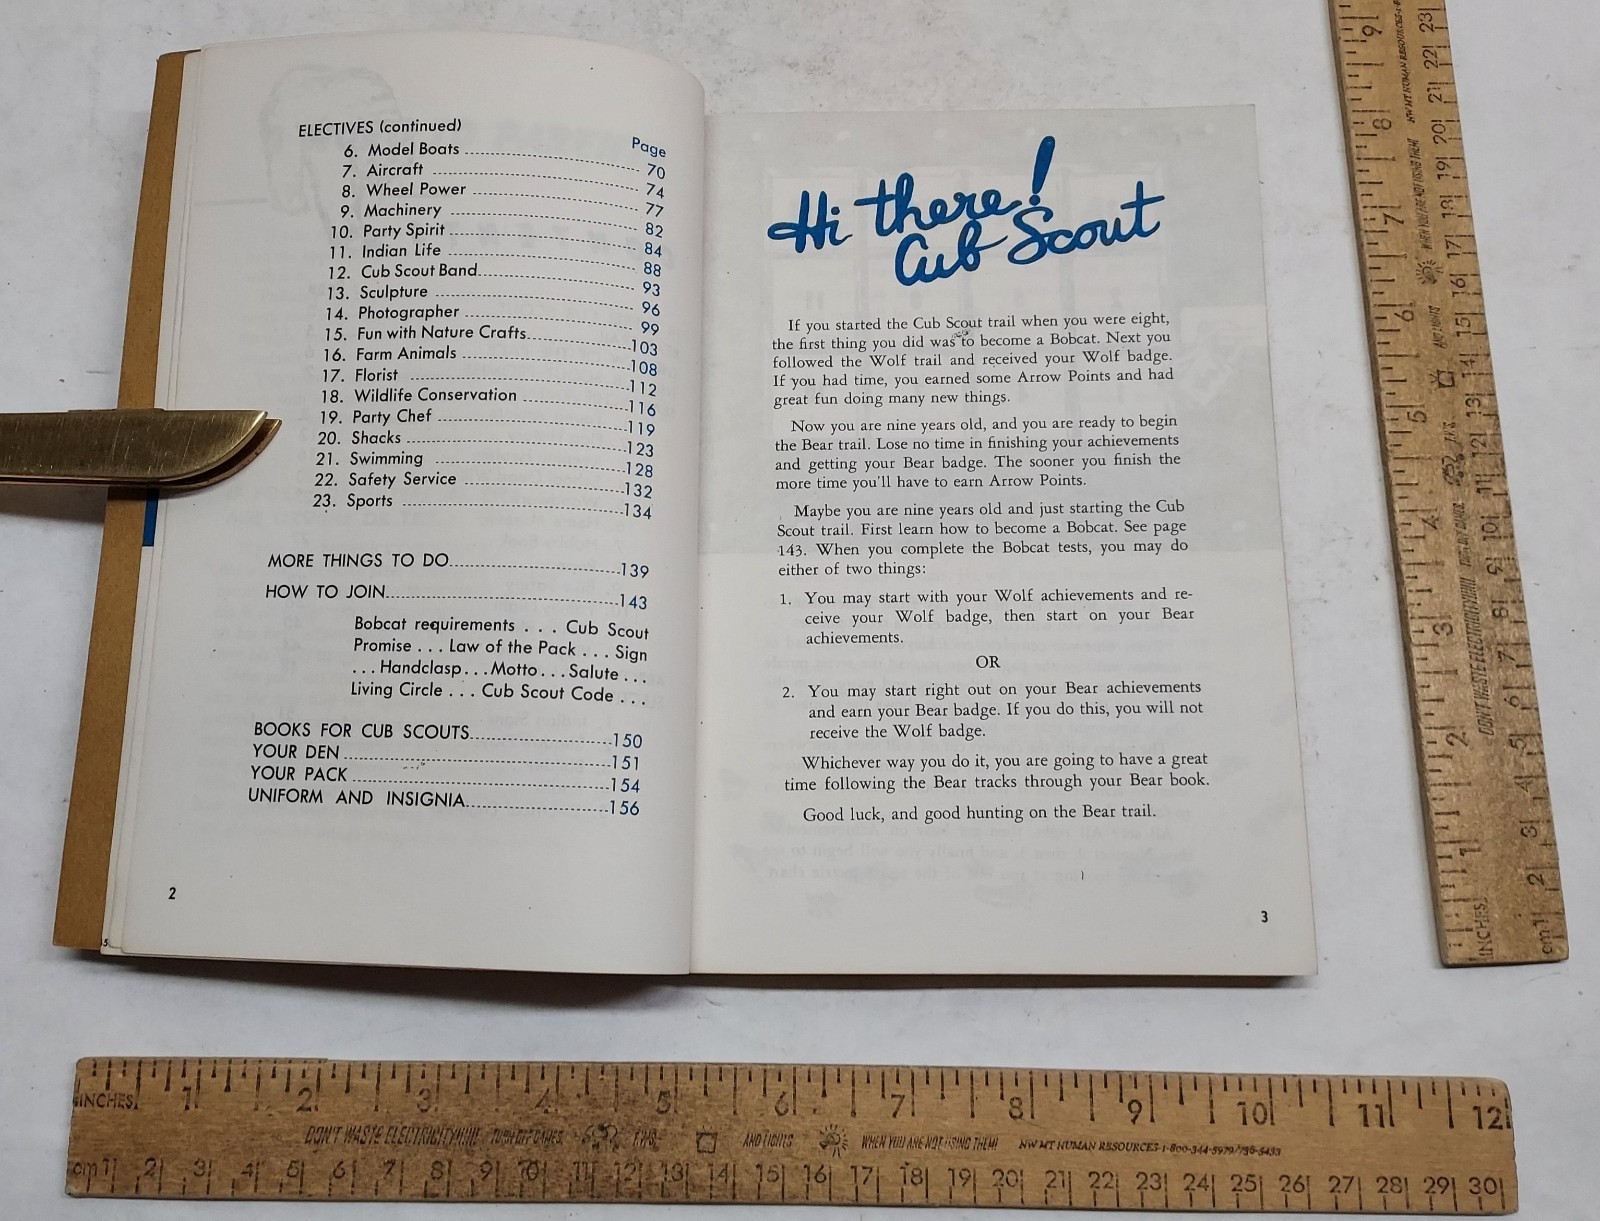 ELECTIVES (continued)
Page
6. Model Boats 70
7. Aircraft 74
8. Wheel Power 77
9. Machinery 82
10. Party Spirit 84
11. Indian Life 88
12. Cub Scout Band 93
13. Sculpture 96
14. Photographer 99
15. Fun with Nature Crafts 103
16. Farm Animals 108
17. Florist 112
18. Wildlife Conservation 116
19. Party Chef 119
20. Shacks 123
21. Swimming 128
22. Safety Service 132
23. Sports 134
MORE THINGS TO DO 139
HOW TO JOIN 143
Bobcat requirements . . . Cub Scout
Promise . . . Law of the Pack . . . Sign
. . . Handclasp . . . Motto . . . Salute . . .
Living Circle . . . Cub Scout Code . . .
BOOKS FOR CUB SCOUTS 150
YOUR DEN 151
YOUR PACK 154
UNIFORM AND INSIGNIA 156
2
Hi there!
Cub Scout
If you started the Cub Scout trail when you were eight,
the first thing you did was to become a Bobcat. Next you
followed the Wolf trail and received your Wolf badge.
If you had time, you earned some Arrow Points and had
great fun doing many new things.
Now you are nine years old, and you are ready to begin
the Bear trail. Lose no time in finishing your achievements
and getting your Bear badge. The sooner you finish the
more time you'll have to earn Arrow Points.
Maybe you are nine years old and just starting the Cub
Scout trail. First learn how to become a Bobcat. See page
143. When you complete the Bobcat tests, you may do
either of two things:
1. You may start with your Wolf achievements and re-
ceive your Wolf badge, then start on your Bear
achievements.
OR
2. You may start right out on your Bear achievements
and earn your Bear badge. If you do this, you will not
receive the Wolf badge.
Whichever way you do it, you are going to have a great
time following the Bear tracks through your Bear book.
Good luck, and good hunting on the Bear trail.
3
INCHES 1 2 3 4 5 6 7 8 9 10 11 12
DON'T WASTE ELECTRICITY!!!! TURN OFF GAMES, AND LIGHTS WHEN YOU ARE NOT USING THEM! NW MT HUMAN RESOURCES-1-800-344-5979/
cm 1 2 3 4 5 6 7 8 9 10 11 12 13 14 15 16 17 18 19 20 21 22 23 24 25 26 27 28 29 30
INCHES 1 2 3 4 5 6 7 8 9
DON'T WASTE ELECTRICITY!!!! AND LIGHTS WHEN YOU ARE NOT USING THEM! NW MT HUMAN RESOURCES
cm 1 2 3 4 5 6 7 8 9 10 11 12 13 14 15 16 17 18 19 20 21 22 23